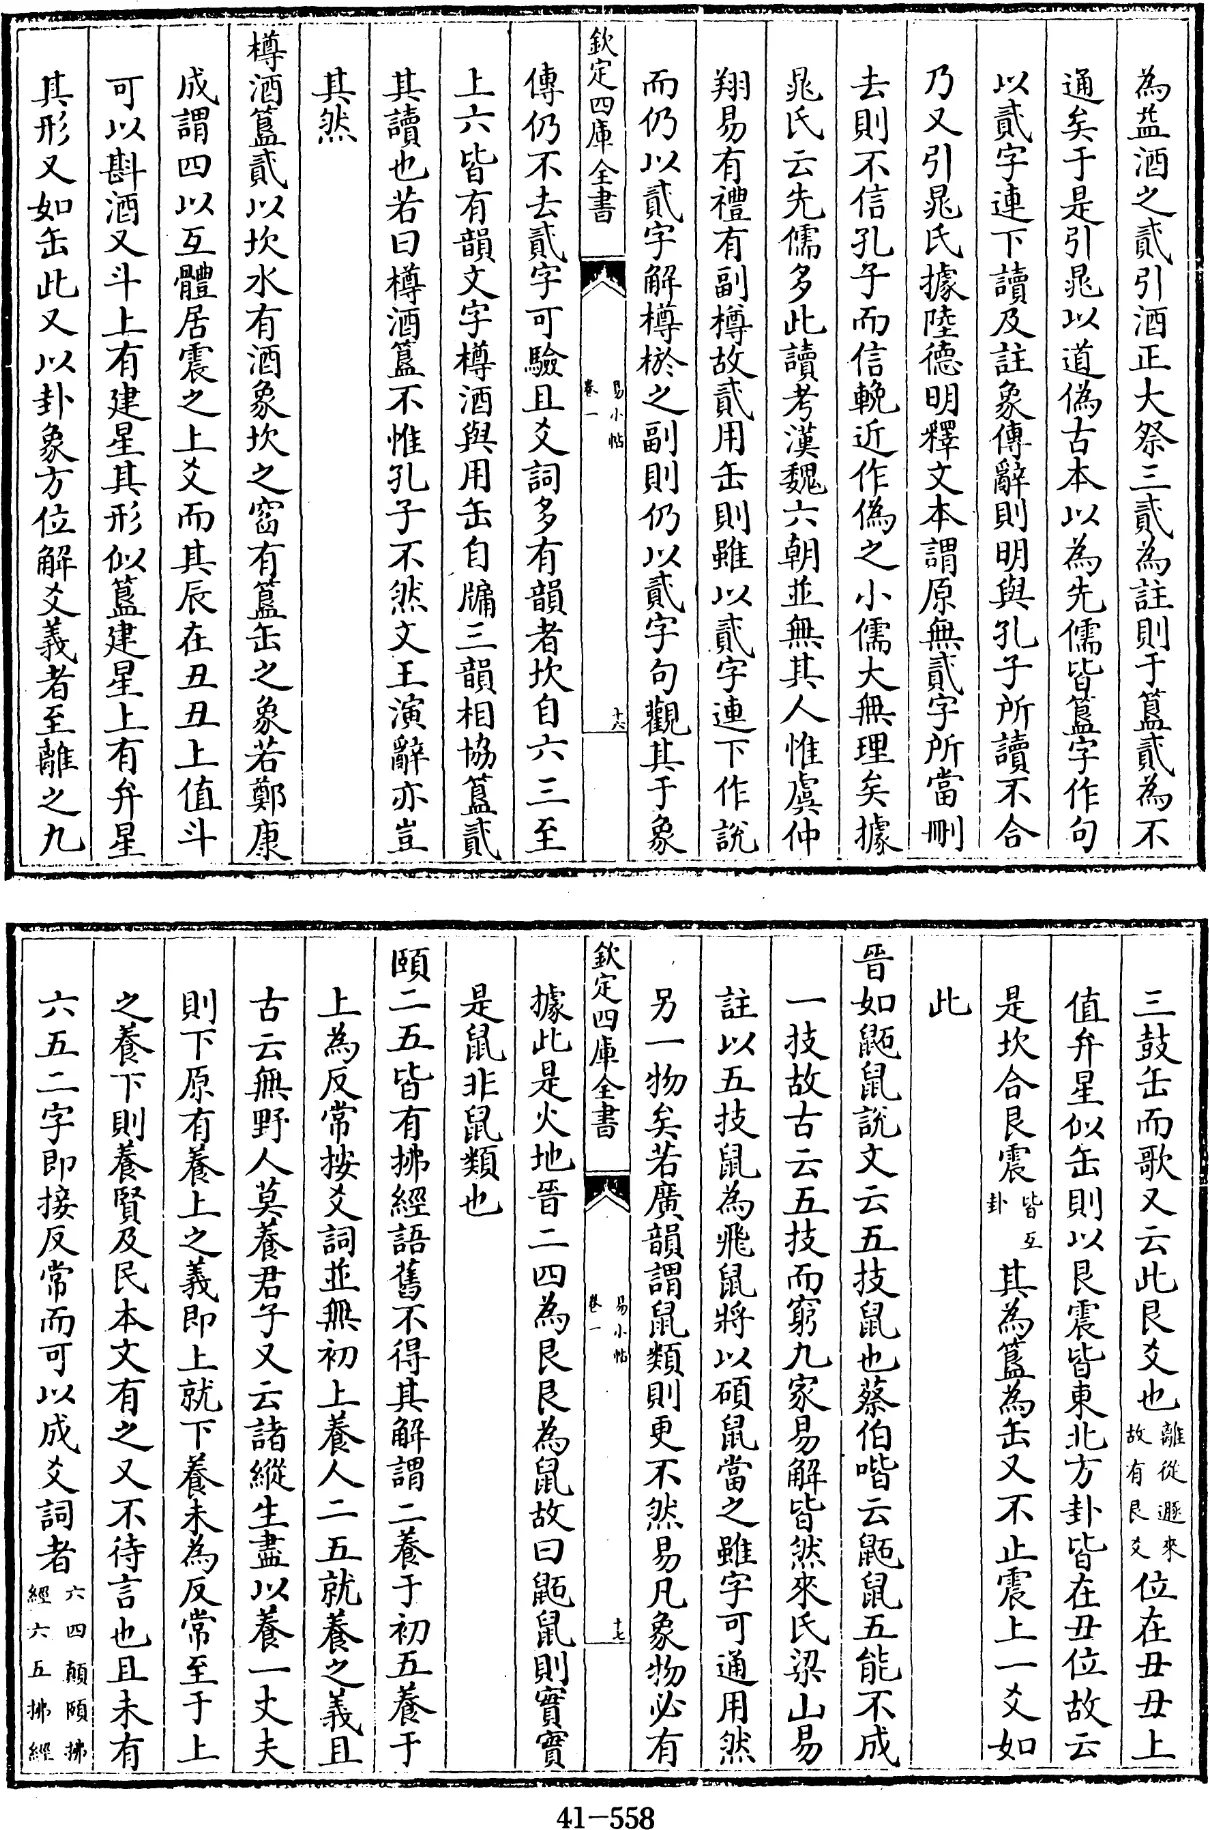 為益酒之貳引酒正大祭三貳為註則于簋貳為不
通矣于是引晁以道偽古本以為先儒皆簋字作句
以貳字連下讀及註象傳辭則明與孔子所讀不合
乃又引晁氏據陸德明釋文本謂原無貳字所當刪
去則不信孔子而信輓近作偽之小儒大無理矣據
晁氏云先儒多此讀考漢魏六朝並無其人惟虞仲
翔易有禮有副樽故貳用缶則雖以貳字連下作說
而仍以貳字解樽於之副則仍以貳字句觀其于象
欽定四庫全書
易小帖
卷一
十六
傳仍不去貳字可驗且爻詞多有韻者坎自六三至
上六皆有韻文字樽酒與用缶自牖三韻相協簋貳
其讀也若曰樽酒簋不惟孔子不然文王演辭亦豈
其然
樽酒簋貳以坎水有酒象坎之窞有簋缶之象若鄭康
成謂四以互體居震之上爻而其辰在丑丑上值斗
可以斟酒又斗上有建星其形似簋建星上有弁星
其形又如缶此又以卦象方位解爻義者至離之九
三鼓缶而歌又云此艮爻也離從遯來故有艮爻位在丑丑上
值弁星似缶則以艮震皆東北方卦皆在丑位故云
是坎合艮震皆互卦其為簋為缶又不止震上一爻如
此
晉如鼫鼠說文云五技鼠也蔡伯喈云鼫鼠五能不成
一技故古云五技而窮九家易解皆然來氏梁山易
註以五技鼠為飛鼠將以碩鼠當之雖字可通用然
另一物矣若廣韻謂鼠類則更不然易凡象物必有
欽定四庫全書
易小帖
卷一
十七
據此是火地晉二四為艮艮為鼠故曰鼫鼠則實實
是鼠非鼠類也
頤二五皆有拂經語舊不得其解謂二養于初五養于
上為反常按爻詞並無初上養人二五就養之義且
古云無野人莫養君子又云諸縱生盡以養一丈夫
則下原有養上之義即上就下養未為反常至于上
之養下則養賢及民本文有之又不待言也且未有
六五二字即接反常而可以成爻詞者六四顛頤拂經六五拂經
41-558